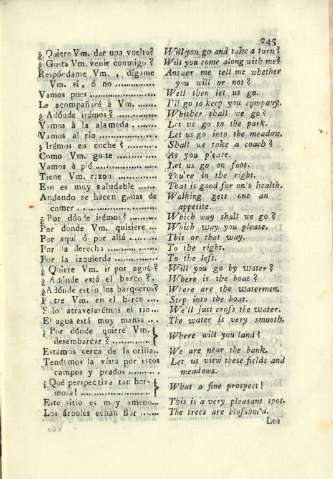 245
¿ Quiere Vm. dar una vuelta? Will you go and take a turn?
¿ Gusta Vm. venir conmigo? Will you come along with me?
Respóndame Vm., dígame Answer me tell me whether
Vm. sí, ó no ............ you will or not?
Vamos pues ............ Well then let us go.
Le acompañaré á Vm. ....... I'll go to keep you company.
¿ Adónde irémos? ............ Whither shall we go?
Vamos á la alameda ......... Let us go to the park.
Vamos al rio ............ Let us go into the meadow.
¿ Irémos en coche? ......... Shall we take a coach?
Como Vm. guste ......... As you please.
Vamos á pié ............ Let us go on foot.
Tiene Vm. razon ......... You're in the right.
Eso es muy saludable ...... That is good for on's health.
Andando se hacen ganas de Walking gets one an
comer ............ appetite.
¿ Por dónde irémos? ......... Which way shall we go?
Por donde Vm. quisiere ... Which way you please.
Por aquí ó por allá ......... This or that way.
Por la derecha ............ To the right.
Por la izquierda ............ To the left.
¿ Quiere Vm. ir por agua? Will you go by water?
¿ Adónde está el barco? .. Where is the boat?
¿ Adónde están los barqueros? Where are the watermen.
Entre Vm. en el barco ... Step into the boat.
Solo atravesarémos el rio... We'll just cross the water.
El agua está muy mansa ... The water is very smooth.
¿ Por dónde quiere Vm. desembarcar? ............ Where will you land?
Estamos cerca de la orilla.. We are near the bank.
Tendamos la vista por estos Let us view these fields and
campos y prados ......... meadows.
¡ Qué perspectiva tan hermosa! ............ What a fine prospect!
Este sitio es muy ameno... This is a very pleasant spot.
Los árboles echan flor ...... The trees are blossom'd.
Los